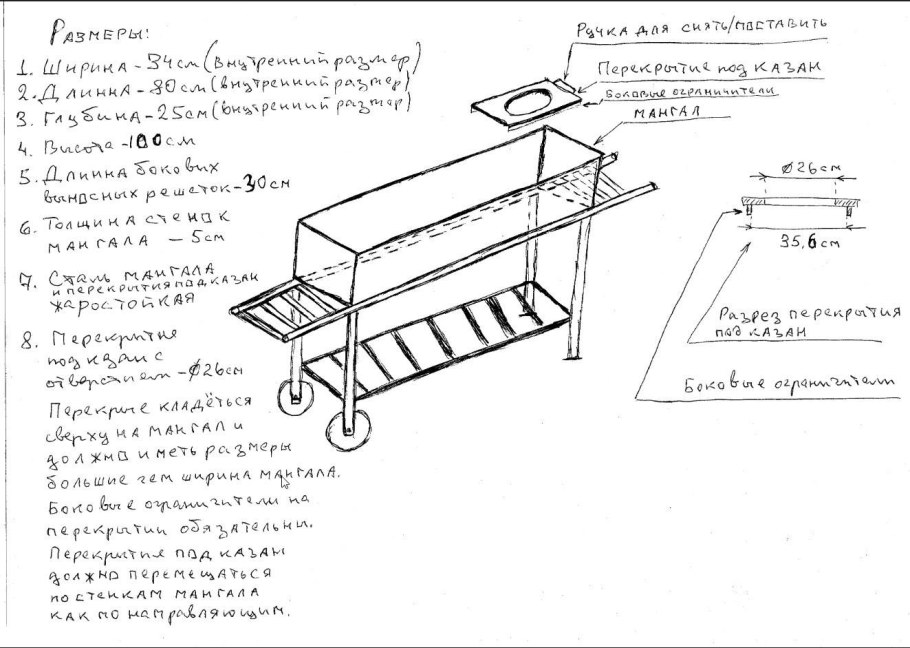 Размеры:
1. Ширина - 34см (внутренний размер)
2. Длинна - 80см (внутренний размер)
3. Глубина - 25см (внутренний размер)
4. Высота - 100см
5. Длинна боковых
выносных решеток - 30см
6. Толщина стенок
мангала - 5см
7. Сталь мангала
и перекрытия под казан
жаростойкая
8. Перекрытие
под казан с
отверстием - ⌀26см
Перекрые кладёться
сверху на мангал и
должно иметь размеры
большие чем ширина мангала.
Боковые ограничители на
перекрытии обязательны.
Перекрытие под казан
должно перемещаться
по стенкам мангала
как по направляющим.
Ручка для снять/поставить
Перекрытие под казан
Боковые ограничители
мангал
⌀26см
35,6см
Разрез перекрытия
под казан
Боковые ограничители